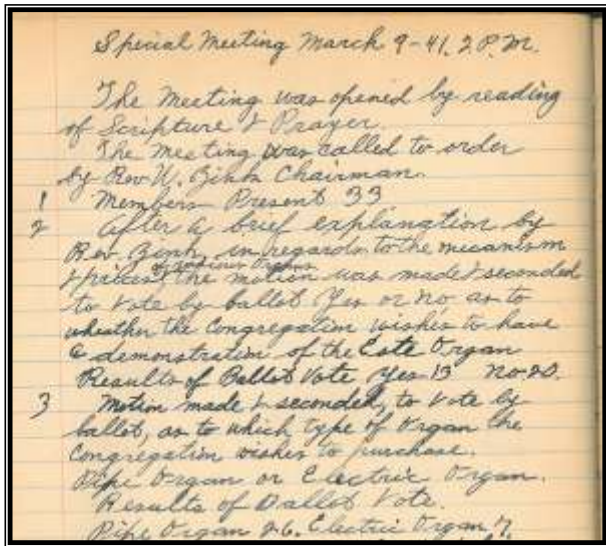 Special Meeting March 9-41. 2 P.M.
The Meeting was opened by reading
of Scripture & Prayer
The Meeting was called to order
by Rev W. Zink Chairman.
1 Members Present 33
2 After a brief explanation by
Rev. Zink in regards to the mecanism
of various Organs
& prices, the motion was made & seconded
to Vote by ballot Yes or No as to
wheather the Congregation wishes to have
a demonstration of the Este Organ
Results of Ballot Vote Yes 13 No 20.
3 Motion made & seconded, to Vote by
ballot, as to which type of Organ the
Congregation wishes to purchase.
Pipe Organ or Electric Organ.
Results of Ballot Vote.
Pipe Organ 26. Electric Organ 7.